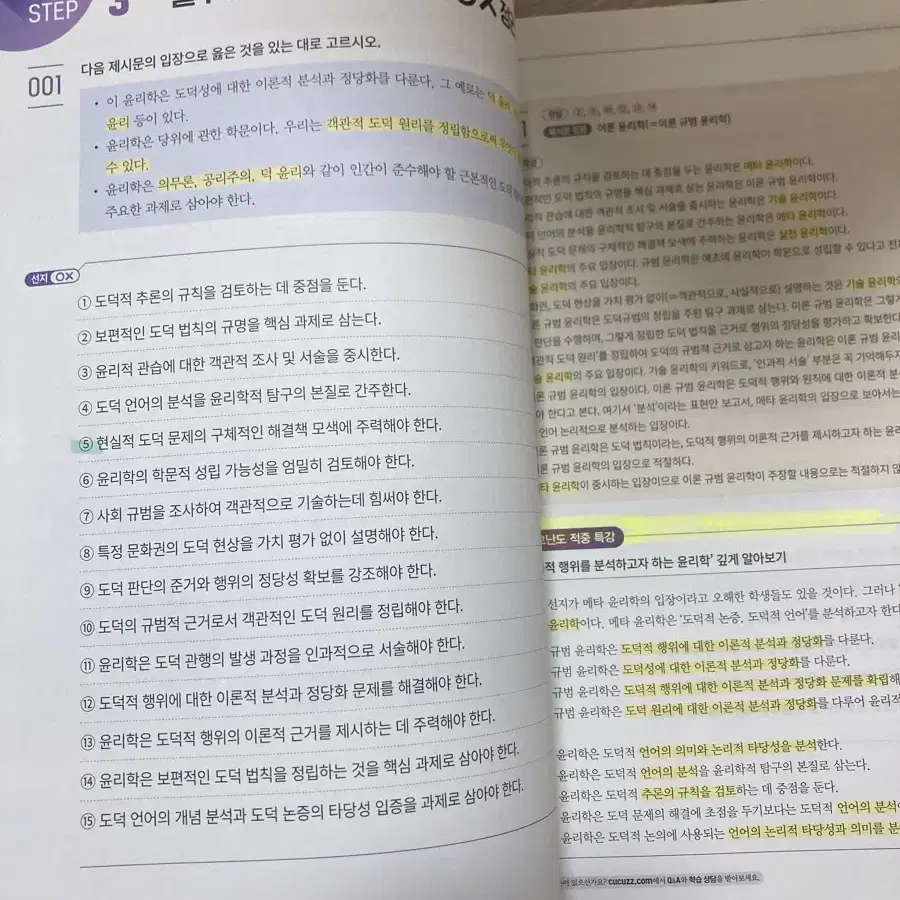 STEP 3
001
다음 제시문의 입장으로 옳은 것을 있는 대로 고르시오.
• 이 윤리학은 도덕성에 대한 이론적 분석과 정당화를 다룬다. 그 예로는 덕
윤리 등이 있다.
• 윤리학은 당위에 관한 학문이다. 우리는 객관적 도덕 원리를 정립함으로써
수 있다.
• 윤리학은 의무론, 공리주의, 덕 윤리와 같이 인간이 준수해야 할 근본적인 도덕
주요한 과제로 삼아야 한다.
선지 OX
① 도덕적 추론의 규칙을 검토하는 데 중점을 둔다.
② 보편적인 도덕 법칙의 규명을 핵심 과제로 삼는다.
③ 윤리적 관습에 대한 객관적 조사 및 서술을 중시한다.
④ 도덕 언어의 분석을 윤리학적 탐구의 본질로 간주한다.
⑤ 현실적 도덕 문제의 구체적인 해결책 모색에 주력해야 한다.
⑥ 윤리학의 학문적 성립 가능성을 엄밀히 검토해야 한다.
⑦ 사회 규범을 조사하여 객관적으로 기술하는데 힘써야 한다.
⑧ 특정 문화권의 도덕 현상을 가치 평가 없이 설명해야 한다.
⑨ 도덕 판단의 준거와 행위의 정당성 확보를 강조해야 한다.
⑩ 도덕의 규범적 근거로서 객관적인 도덕 원리를 정립해야 한다.
⑪ 윤리학은 도덕 관행의 발생 과정을 인과적으로 서술해야 한다.
⑫ 도덕적 행위에 대한 이론적 분석과 정당화 문제를 해결해야 한다.
⑬ 윤리학은 도덕적 행위의 이론적 근거를 제시하는 데 주력해야 한다.
⑭ 윤리학은 보편적인 도덕 법칙을 정립하는 것을 핵심 과제로 삼아야 한다.
⑮ 도덕 언어의 개념 분석과 도덕 논증의 타당성 입증을 과제로 삼아야 한다.
이론 윤리학(=이론 규범 윤리학)
추론의 규칙을 검토하는 데 중점을 두는 윤리학은 메타 윤리학이다.
도덕 법칙의 규명을 핵심 과제로 삼는 윤리학은 이론 규범 윤리학이다.
관습에 대한 객관적 조사 및 서술을 중시하는 윤리학은 기술 윤리학이다.
언어의 분석을 윤리학적 탐구의 본질로 간주하는 윤리학은 메타 윤리학이다.
도덕 문제의 구체적인 해결책 모색에 주력하는 윤리학은 실천 윤리학이다.
윤리학의 주요 입장이다. 규범 윤리학은 애초에 윤리학이 학문으로 성립할 수 있다고 전제
윤리학의 주요 입장이다.
도덕 현상을 가치 평가 없이(=객관적으로, 사실적으로) 설명하는 것은 기술 윤리학의
규범 윤리학은 도덕규범의 정립을 주된 탐구 과제로 삼는다. 이론 규범 윤리학은 그렇게
판단을 수행하며, 그렇게 정립한 도덕 법칙을 근거로 행위의 정당성을 평가하고 확보한다.
객관적 도덕 원리'를 정립하여 도덕의 규범적 근거로 삼고자 하는 윤리학은 이론 규범 윤리
윤리학의 주요 입장이다. 기술 윤리학의 키워드로, '인과적 서술' 부분은 꼭 기억해두자
규범 윤리학의 입장이다. 이론 규범 윤리학은 도덕적 행위와 원칙에 대한 이론적 분
야 한다고 본다. 여기서 '분석'이라는 표현만 보고서, 메타 윤리학의 입장으로 보아서는
언어 논리적으로 분석하는 입장이다.
규범 윤리학은 도덕 법칙이라는, 도덕적 행위의 이론적 근거를 제시하고자 하는 윤리
규범 윤리학의 입장으로 적절하다.
메타 윤리학이 중시하는 입장이므로 이론 규범 윤리학이 주장할 내용으로는 적절하지 않
난도 적중 특강
적 행위를 분석하고자 하는 윤리학' 깊게 알아보기
선지가 메타 윤리학의 입장이라고 오해한 학생들도 있을 것이다. 그러나
윤리학이다. 메타 윤리학은 '도덕적 논증, 도덕적 언어'를 분석하고자 한다
규범 윤리학은 도덕적 행위에 대한 이론적 분석과 정당화를 다룬다.
규범 윤리학은 도덕성에 대한 이론적 분석과 정당화를 다룬다.
규범 윤리학은 도덕적 행위에 대한 이론적 분석과 정당화 문제를 확립해
규범 윤리학은 도덕 원리에 대한 이론적 분석과 정당화를 다루어 윤리적
윤리학은 도덕적 언어의 의미와 논리적 타당성을 분석한다.
윤리학은 도덕적 언어의 분석을 윤리학적 탐구의 본질로 삼는다.
윤리학은 도덕적 추론의 규칙을 검토하는 데 중점을 둔다.
윤리학은 도덕 문제의 해결에 초점을 두기보다는 도덕적 언어의 분석에
윤리학은 도덕적 논의에 사용되는 언어의 논리적 타당성과 의미를 분
있으신가요? cucuzz.com에서 Q&A와 학습 상담을 받아보세요.